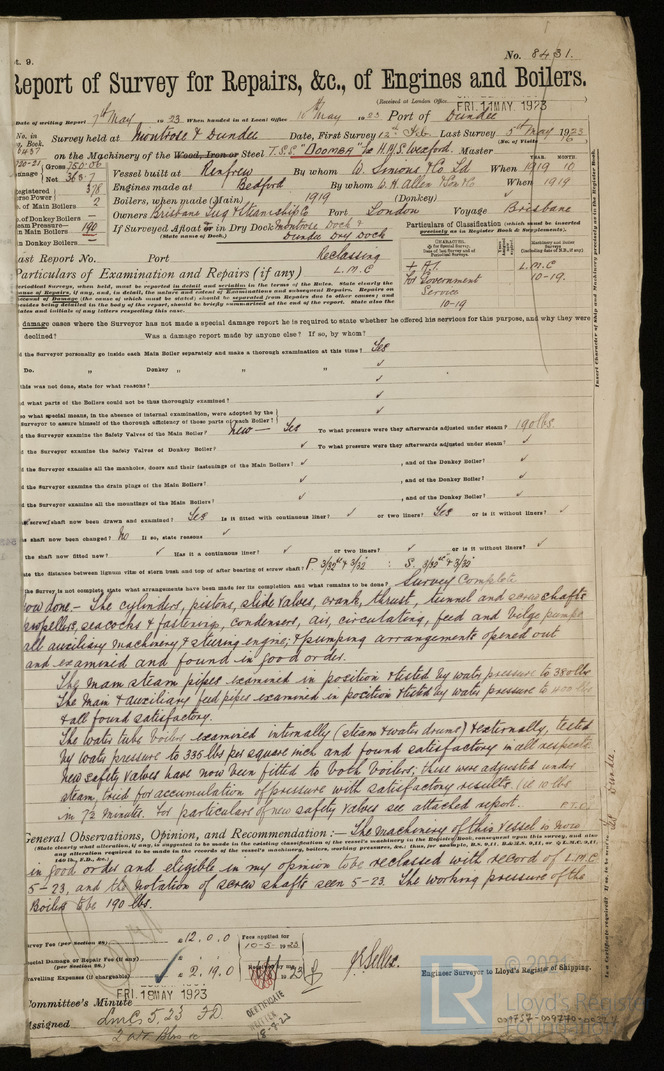 No. 8431.
Report of Survey for Repairs, &c., of Engines and Boilers.
(Received at London Office FRI. 11 MAY 1923
Date of writing Report 7th May 1923 When handed in at Local Office 10th May 1923 Port of Dundee
No. in Survey held at Montrose & Dundee Date, First Survey 12th Feb Last Survey 5th May 1923
(No. of Visits 16
on the Machinery of the Wood, Iron or Steel T.S.S. "DOOMBA" late H.M.S. Wexford. Master
Gross 750.06
Net 368.7
Vessel built at Renfrew By whom W. Simons & Co Ld When 1919 10
YEAR. MONTH.
Registered Horse Power 378
Engines made at Bedford By whom W. H. Allen Son & Co When 1919
No. of Main Boilers 2
Boilers, when made (Main) 1919 (Donkey)
No. of Donkey Boilers —
Owners Brisbane Tug & Steamship Co Port London Voyage Brisbane
Steam Pressure— 190
in Main Boilers
If Surveyed Afloat or in Dry Dock Montrose Dock &
(State name of Dock.) Dundee Dry Dock
in Donkey Boilers —
Particulars of Classification (which must be inserted precisely as in Register Book & Supplements).
Last Report No. Port Reclassing
Particulars of Examination and Repairs (if any) L.M.C
for Government
Service
10-19
L.M.C
10-19.
damage cases where the Surveyor has not made a special damage report he is required to state whether he offered his services for this purpose, and why they were
declined? Was a damage report made by anyone else? If so, by whom?
the Surveyor personally go inside each Main Boiler separately and make a thorough examination at this time? Yes
Do. " Donkey " " " ✓
this was not done, state for what reasons? ✓
what parts of the Boilers could not be thus thoroughly examined? ✓
what special means, in the absence of internal examination, were adopted by the
Surveyor to assure himself of the thorough efficiency of those parts of each Boiler? ✓
the Surveyor examine the Safety Valves of the Main Boiler? New — Yes To what pressure were they afterwards adjusted under steam? 190 lbs
the Surveyor examine the Safety Valves of Donkey Boiler? ✓ To what pressure were they afterwards adjusted under steam? ✓
the Surveyor examine all the manholes, doors and their fastenings of the Main Boilers? ✓ , and of the Donkey Boiler? ✓
the Surveyor examine the drain plugs of the Main Boilers? ✓ , and of the Donkey Boiler? ✓
the Surveyor examine all the mountings of the Main Boilers? ✓ , and of the Donkey Boiler? ✓
screw shaft now been drawn and examined? Yes Is it fitted with continuous liner? ✓ or two liners? Yes or is it without liners? ✓
shaft now been changed? No If so, state reasons ✓
the shaft now fitted new? ✓ Has it a continuous liner? ✓ or two liners? ✓ or is it without liners? ✓
the distance between lignum vitæ of stern bush and top of after bearing of screw shaft? P. 3/32" & 3/32 : S. 3/32" & 3/32"
the Survey is not complete state what arrangements have been made for its completion and what remains to be done? Survey Complete
Now done.— The cylinders, pistons, slide valves, crank, thrust, tunnel and screw shafts
propellers, seacocks & fastenings, condensers, air, circulating, feed and bilge pumps
all auxiliary machinery & steering engine; & pumping arrangements opened out
and examined and found in good order.
The main steam pipes examined in position & tested by water pressure to 380 lbs
The main & auxiliary feed pipes examined in position & tested by water pressure to
& all found satisfactory.
The water tube boilers examined internally (steam & water drums) & externally, tested
by water pressure to 335 lbs per square inch and found satisfactory in all respects
New safety valves have now been fitted to both boilers; these were adjusted under
steam, tried for accumulation of pressure with satisfactory results. i.e. 10 lbs
in 7½ minutes. For particulars of new safety valves see attached report. P.T.O.
General Observations, Opinion, and Recommendation:— The machinery of this vessel is now
in good order and eligible in my opinion to be reclassed with record of L.M.C
5-23, and the notation of screw shafts seen 5-23. The working pressure of the
Boilers to be 190 lbs.
Survey Fee (per Section 29) £ 12.0.0
Fees applied for
10-5-1923
Special Damage or Repair Fee (if any)
(per Section 29.)
Travelling Expenses (if chargeable) £ 2.19.0
Engineer Surveyor to Lloyd's Register of Shipping.
Committee's Minute FRI. 18 MAY 1923
Assigned LMC 5.23 FD
CERTIFICATE WRITTEN
© 2021
LR
Lloyd's Register
Foundation